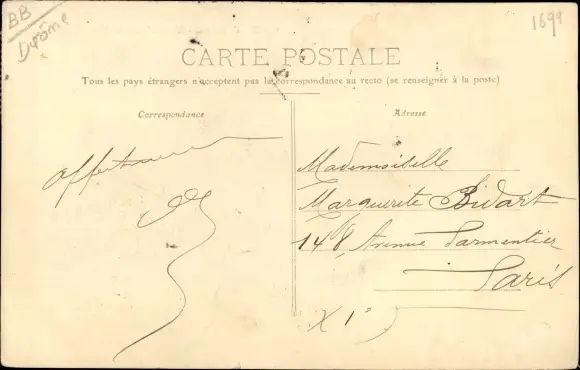 BB
Drôme
1699
CARTE POSTALE
Tous les pays étrangers n'acceptent pas la correspondance au recto (se renseigner à la poste)
Correspondance
Adresse
Mademoiselle
Marguerite Bidart
148, Avenue Parmentier
Paris
XIº